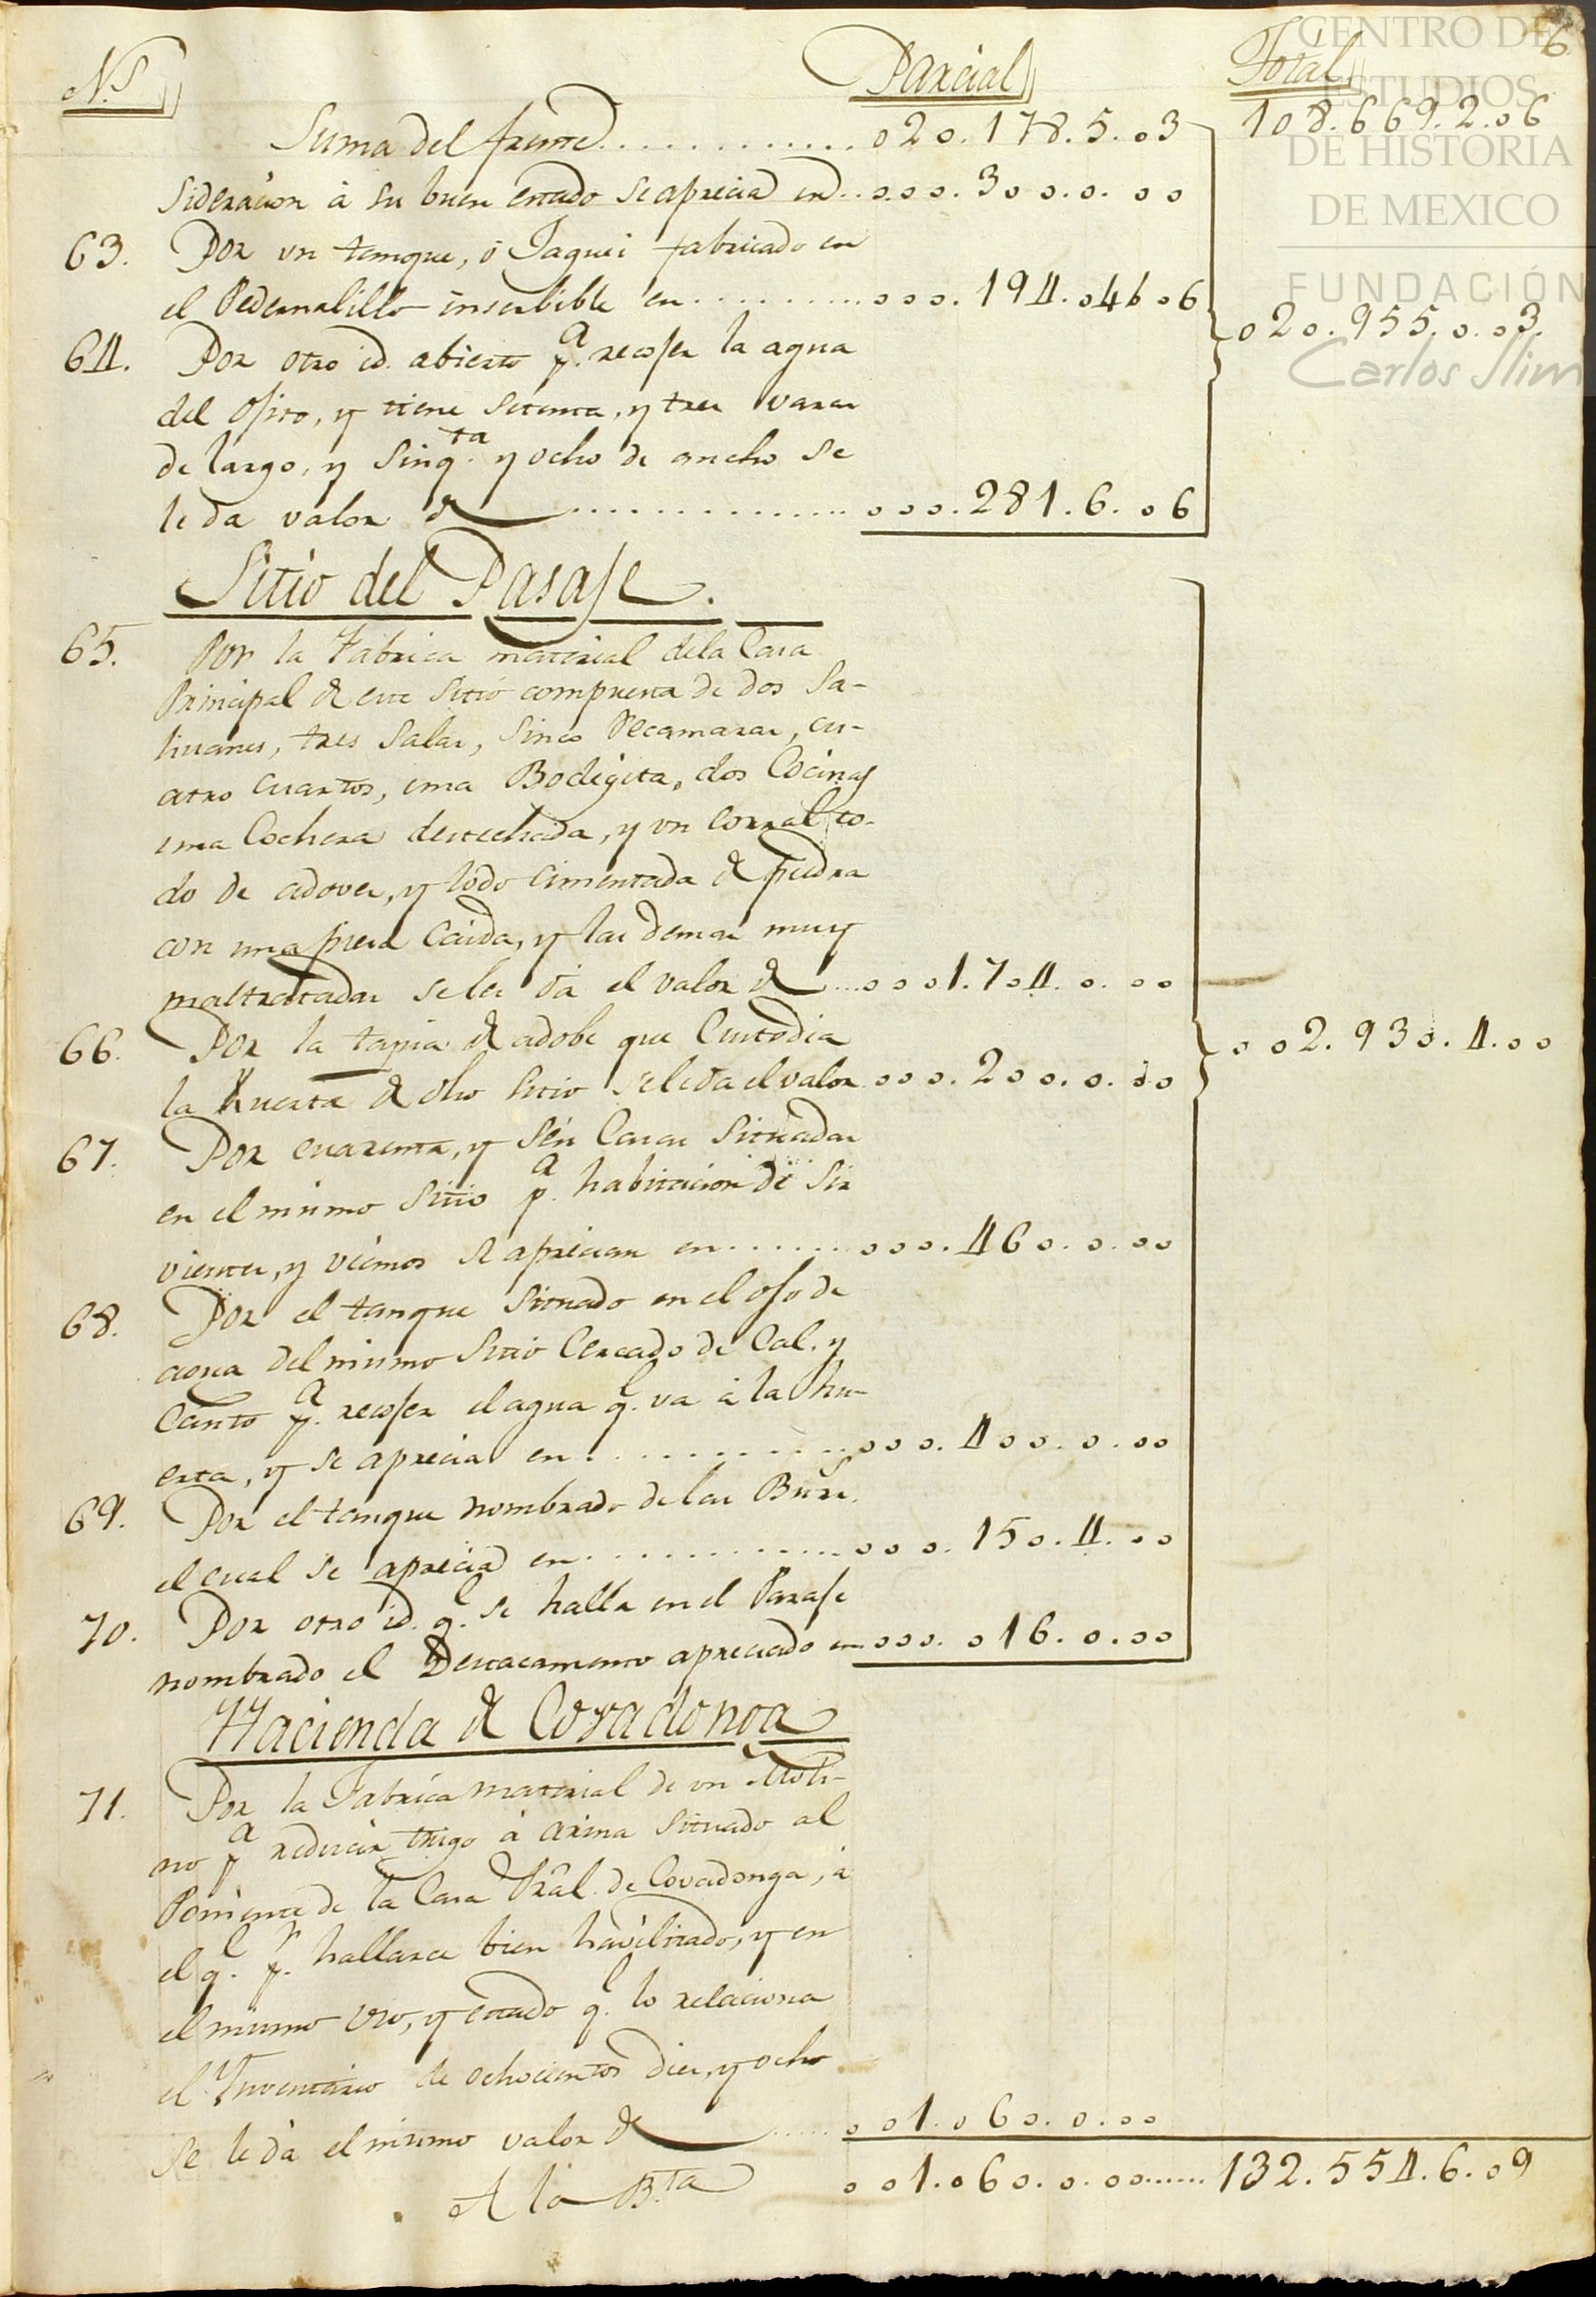 6
N.s Parcial Total
Suma del frente............ 020.178.5.03 108.669.2.06
sideracion â su buen estado se aprecia en.. 000.300.0.00
63. Por vn tanque, ó Jaguei fabricado en
el Pedernalillo inserbible en.......... 000.194.04606
020.955.0.03.
64. Por otro id. abierto p.a recojer la agua
del ojito, y tiene setenta, y tres varas
de largo, y sinq.ta y ocho de ancho se
le da valor de .............. 000.281.6.06
Sitio del Pasaje.
65. Por la Fabrica material dela Casa
Principal de este sitio compuesta de dos Sa-
huanes, tres Salas, sinco Recamaras, cu-
atro cuartos, una Bodegita, dos Cocinas
una Cochera destechada, y vn corral to-
do de adoves, y lodo cimentada de piedra
con una piesa caida, y las demas muy
maltratadas se les dá el valor de ... 0001.704.0.00
66. Por la tapia de adobe que Custodia
la huerta de dho sitio se le da el valor 000.200.0.00
002.930.4.00
67. Por cuarenta, y séis Casas Situadas
en el mismo Sitio p.a habitacion de Sir
vientes, y vécinos se aprecian en...... 000.460.0.00
68. Por el tanque situado en el ojo de
agua del mismo Sitio Cercado de Cal, y
Canto p.a recojer el agua q.e va â la hu-
erta, y se aprecia en........... 000.400.0.00
69. Por el tanque nombrado de las Burr.s
el cual se aprecia en............ 000.150.4.00
70. Por otro id. q.e se halla en el Paraje
nombrado el Destacamento apreciado en 000.016.0.00
Hacienda de Covadonga
71. Por la Fabrica material de vn Moli-
no p.a reducir trigo â arina situado al
Poniente de la Casa Prâl. de Covadonga, â
el q.e p.r hallarse bien havilitado, y en
el mismo Vso, y estado q.e lo relaciona
el Ynventario de ochocientos diez, y ocho
se le dá el mismo valor de ...... 001.060.0.00
A la B.ta 001.060.0.00....... 132.554.6.09
CENTRO DE
ESTUDIOS
DE HISTORIA
DE MEXICO
FUNDACIÓN
Carlos Slim